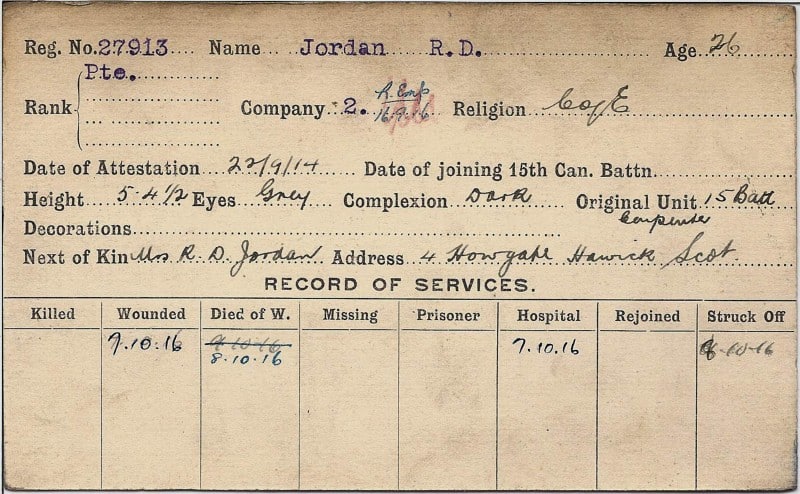 Reg. No. 27913 Name Jordan R.D. Age 26
Rank Pte.
Company 2. 16.9.16 Religion C of E
Date of Attestation 22/9/14 Date of joining 15th Can. Battn.
Height 5-4 1/2 Eyes Grey Complexion Dark Original Unit 15 Batt
Decorations Carpenter
Next of Kin Mrs R. D. Jordan Address 4 Howgate Hawick Scot.
RECORD OF SERVICES.
Killed Wounded Died of W. Missing Prisoner Hospital Rejoined Struck Off
7.10.16 9-10-16 7.10.16 8-10-16
8.10.16